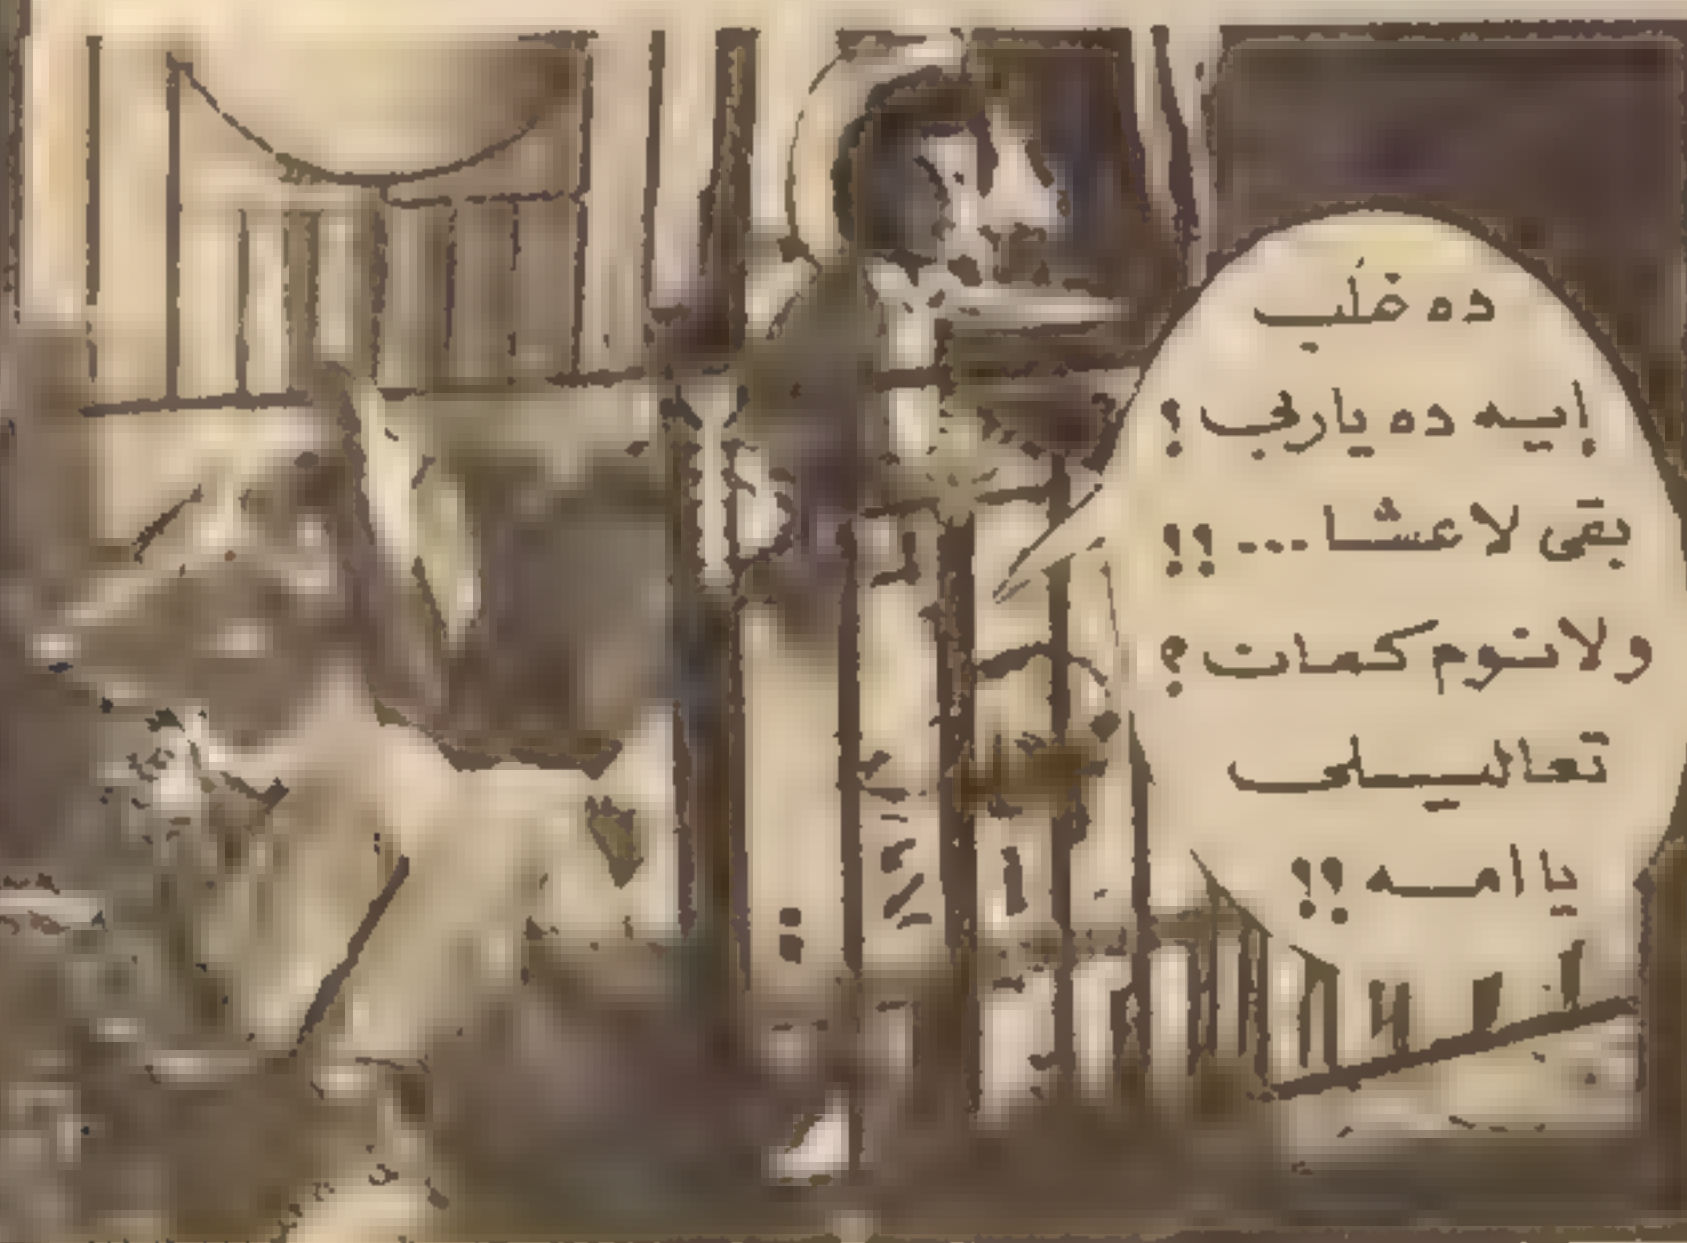 ده غلب
إيه ده يارب ؟
بقى لا عشا ... !!
ولا نوم كمان ؟
تعاليلى
يا امه !!